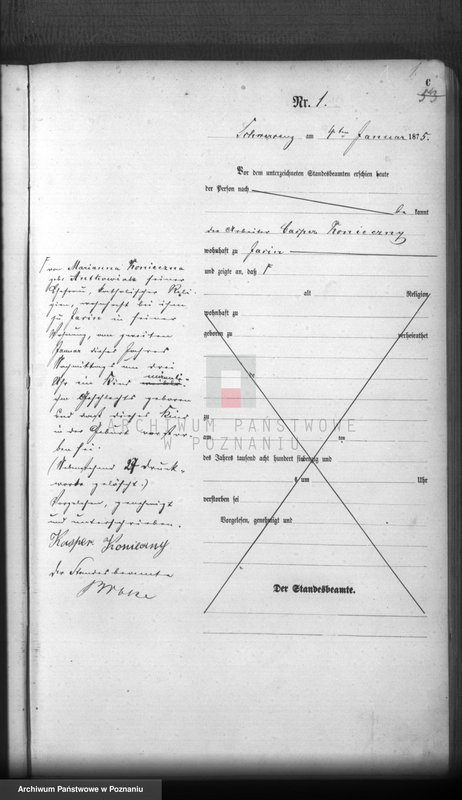 C
53
Nr. 1.
Schwersenz am 4ten Januar 1875.
Vor dem unterzeichneten Standesbeamten erschien heute
der Person nach
be kannt
der Arbeiter Casper Konieczny
wohnhaft zu
und zeigte an, daß Γ
alt Religion
wohnhaft zu
geboren zu verheirathet
zu
am ten
des Jahres tausend acht hundert siebenzig und
um Uhr
verstorben sei
Vorgelesen, genehmigt und
Der Standesbeamte.
Γ von Marianna Konieczna
geb. Antkowiak seiner
Ehefrau, katholischer Reli-
gion, wohnhaft bei ihm
zu in seiner
Wohnung, am zweiten
Januar dieses Jahres
Nachmittags um drei
Uhr ein Kind männli-
chen Geschlechts geboren
und daß dieses Kind
in der Geburt verstor-
ben sei.
(Vorstehend 27 Druck-
worte gelöscht.)
Vorgelesen, genehmigt
und unterschrieben.
Kasper Konieczny
Der Standesbeamte
ARCHIWUM PAŃSTWOWE
W POZNANIU
Archiwum Państwowe w Poznaniu